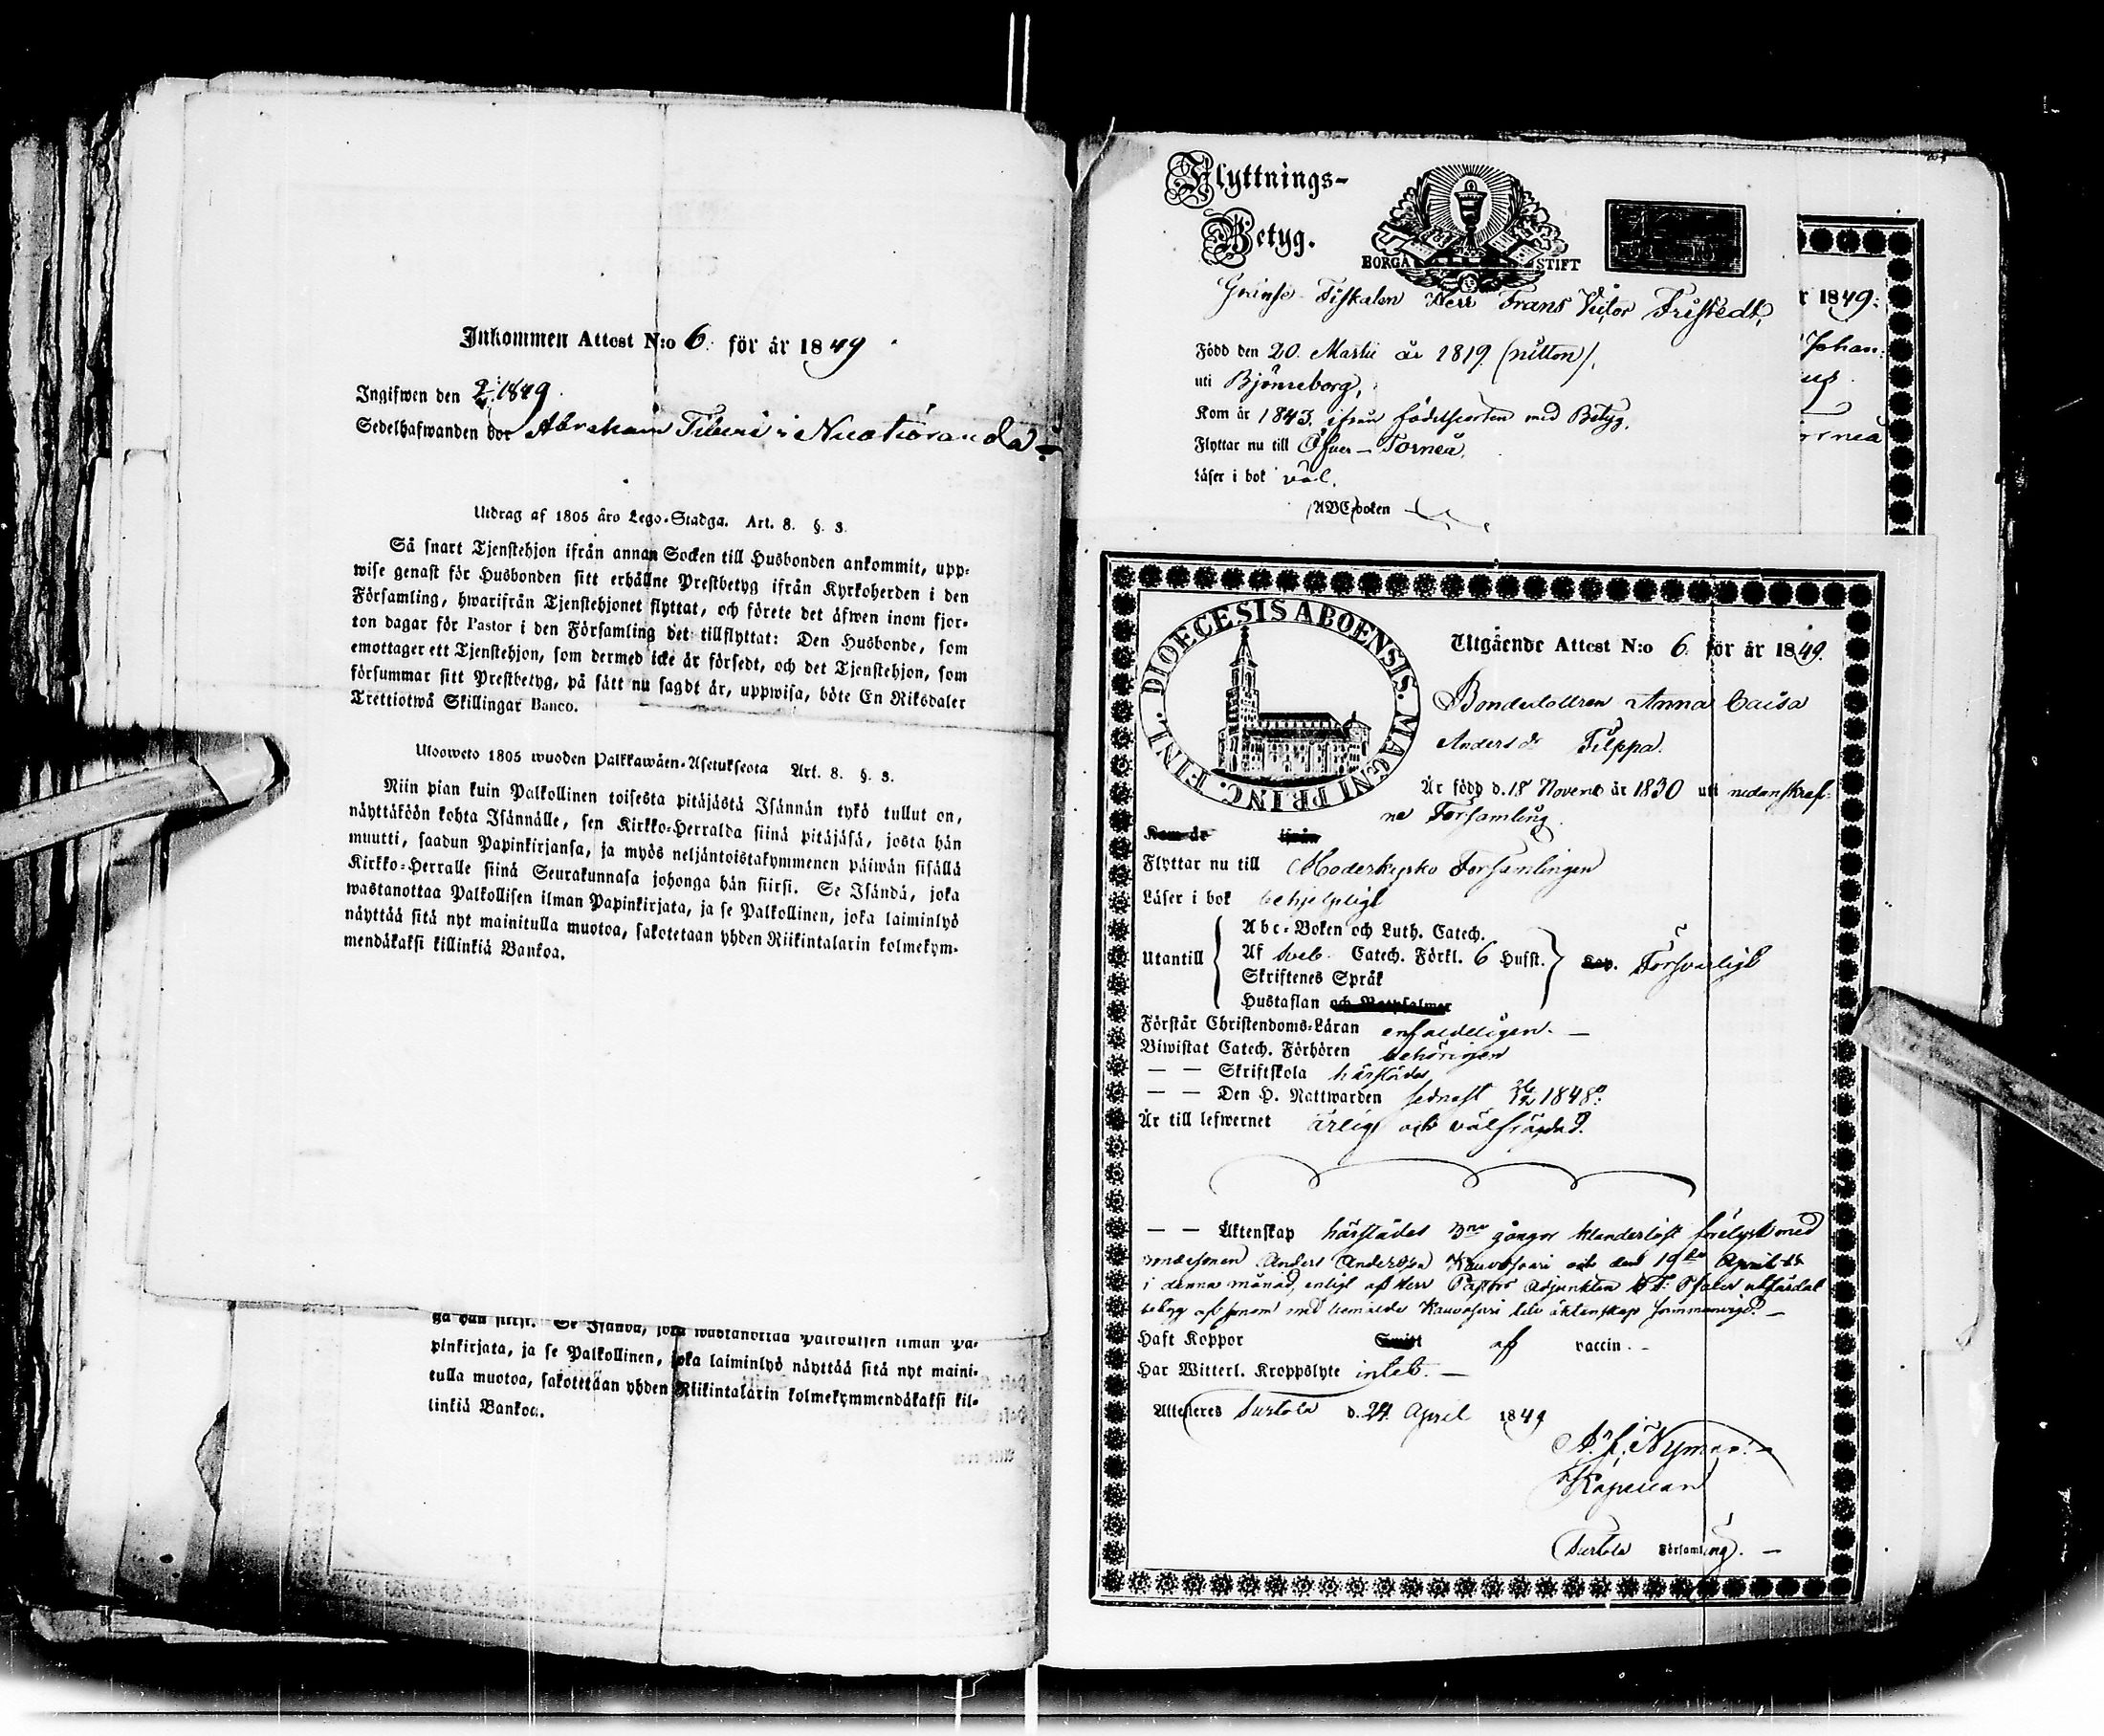 Inkommen Attest N:o 6. för år 1849
Ingifwen den 1849.
Sedelhafwanden bor Abraham i
Utdrag af 1805 års Lego-Stadga. Art. 8. §. 3.
Så snart Tjenstehjon ifrån annan Socken till Husbonden ankommit, upp-
wise genast för Husbonden sitt erhållne Prestbetyg ifrån Kyrkoherden i den
Församling, hwarifrån Tjenstehjonet flyttat, och förete det äfwen inom fjor-
ton dagar för Pastor i den Församling det tillflyttat: Den Husbonde, som
emottager ett Tjenstehjon, som dermed icke är försedt, och det Tjenstehjon, som
försummar sitt Prestbetyg, på sätt nu sagdt är, uppwisa, böte En Riksdaler
Trettiotwå Skillingar Banco.
Ulosweto 1805 wuoden Palkkawäen-Asetuksesta Art. 8. §. 3.
Niin pian kuin Palkollinen toisesta pitäjästä Isännän tykö tullut on,
näyttäköön kohta Isännälle, sen Kirkko-Herralda siinä pitäjäsä, josta hän
muutti, saadun Papinkirjansa, ja myös neljäntoistakymmenen päiwän sisällä
Kirkko-Herralle siinä Seurakunnasa johonga hän siirsi. Se Isändä, joka
wastanottaa Palkollisen ilman Papinkirjata, ja se Palkollinen, joka laiminlyö
näyttää sitä nyt mainitulla muotoa, sakotetaan yhden Riikintalarin kolmekym-
mendäkaksi killinkiä Bankoa.
ga hän siirsi. Se Isändä, joka wastanottaa Palkollisen ilman Pa-
pinkirjata, ja se Palkollinen, joka laiminlyö näyttää sitä nyt maini-
tulla muotoa, sakotetaan yhden Riikintalarin kolmekymmendäkaksi kil-
linkiä Bankoa.
Flyttnings-
Betyg.
BORGÅ STIFT
Gränse Fiskalen Herr Frans Victor Fristedt,
Född den 20. Martii år 1819. (nitton),
uti Björneborg,
Kom år 1843. ifrån födelseorten med Betyg,
Flyttar nu till Öfver-Torneå,
Läser i bok väl,
(ABC)boken
r 1849:
Johan:
rneå
DIOECESIS ABOENSIS. MAGNI PRINC. FINL.
Utgående Attest N:o 6. för år 1849.
Bondedottren Anna Caisa
Anders dr Filppa.
Är född d. 18 Novemb år 1830 uti nedanskref-
ne Församling.
Kom år ifrån
Flyttar nu till Moderkyrko Församlingen
Läser i bok behjelpligt
Utantill
Abc-Boken och Luth. Catech.
Af Sveb. Catech. Förkl. 6 Hufst.
Skriftenes Språk
Hustaflan och Botpsalmer
Försvarligt
Förstår Christendoms-Läran enfaldeligen. —
Biwistat Catech. Förhören behörigen
— — Skriftskola härstädes
— — Den H. Nattwarden sednast 1848.
Är till lefwernet ärlig och välfrägdad.
— — Äktenskap härstädes 3ne gångor klanderlöst förelyst med
Bondesonen Anders Andersson Kauvosaari och den 19de April
i denna månad, enligt af Herr Pastors Adjunkten utfärdat
betyg af honom med bemälde Kauvosaari till äktenskap sammanvigd. —
Haft Koppor Smitt af vaccin. -
Har Witterl. Kroppslyte intet. —
Attesteres Turtola d. 24. April 1849
Nyman
Kapellan
Turtola Församling. —